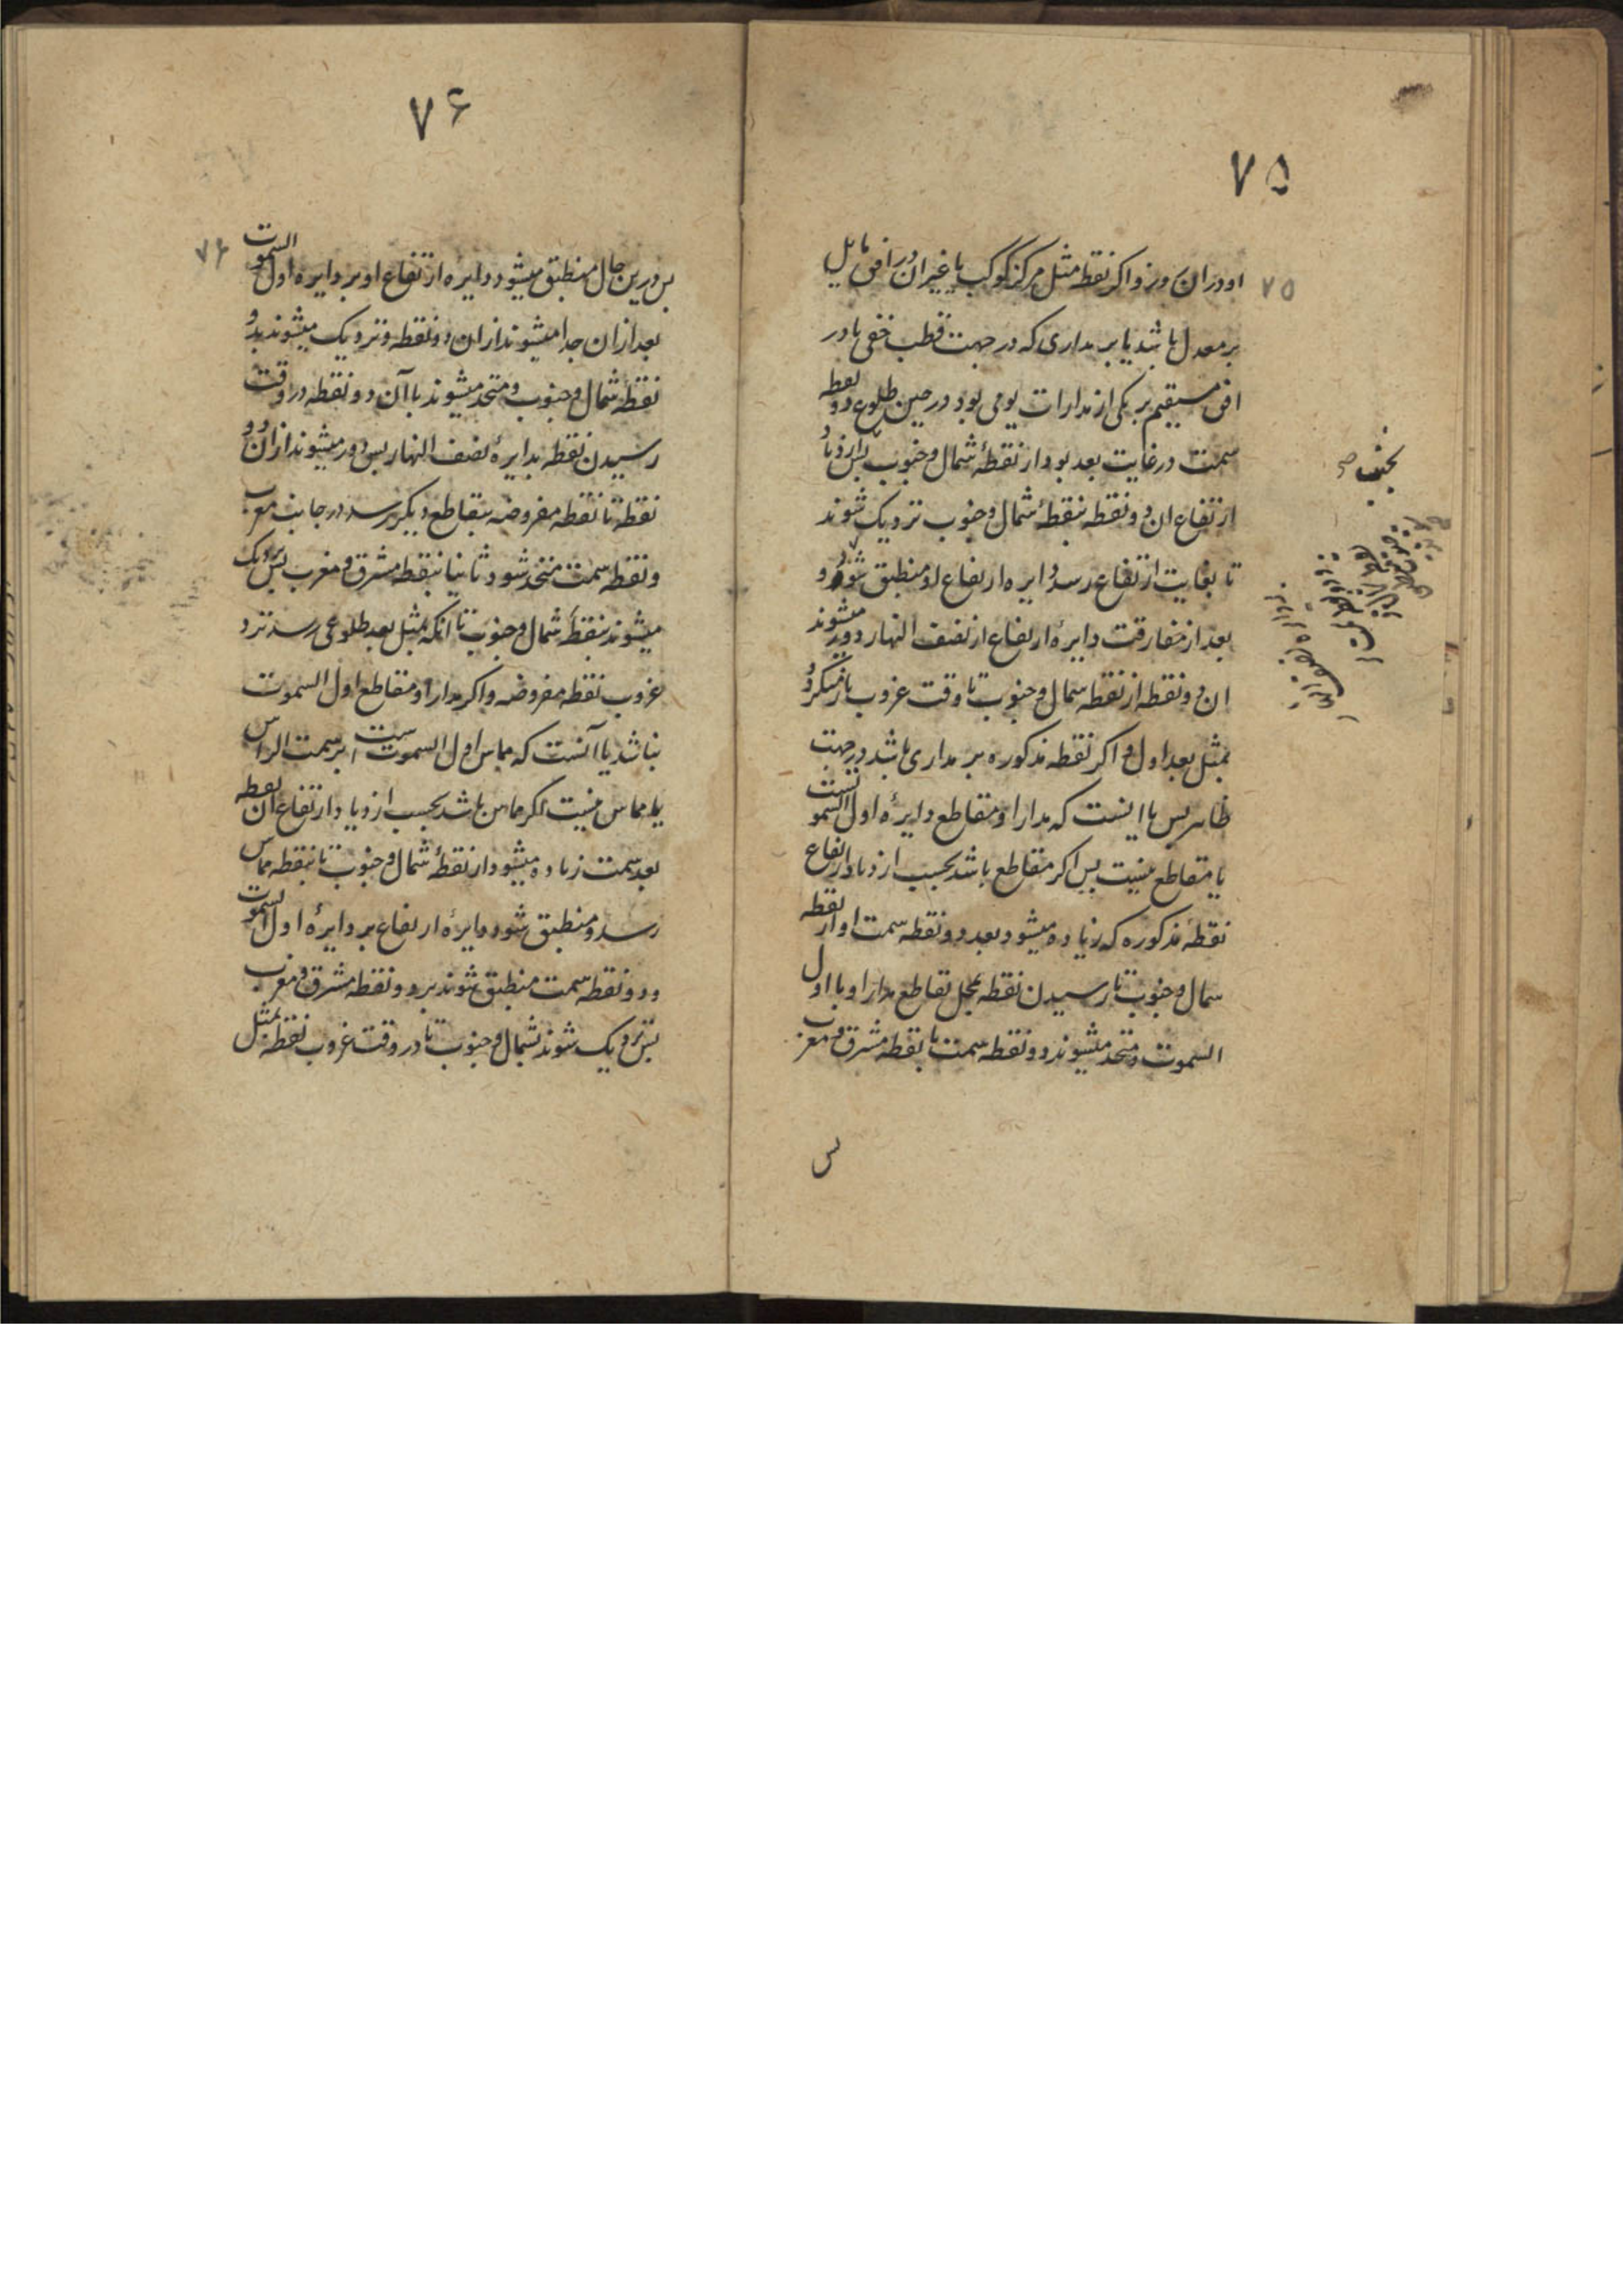 ۷۵
۷۵
او در ان روز و اکر نقطه مثل مرکز کوکب یا غیر ان در افق مایل
بر معدل باشد یا بر مداری که در جهت قطب خفی یا در
افق مستقیم بر یکی از مدارات یومی بود در حین طلوع دو نقطه
سمت در غایت بعد بود از نقطهٔ شمال و جنوب پس بازدیاد
ارتفاع ان دو نقطه بنقطهٔ شمال و جنوب نزدیک شوند
تا بغایت ارتفاع رسد و دایره ارتفاع او منطبق شود و
بعد از مفارقت دایرهٔ ارتفاع از نصف النهار دور میشوند
ان دو نقطه از نقطه شمال و جنوب تا وقت غروب باز میکردد
بمثل بعد اول و اکر نقطه مذکوره بر مداری باشد در جهت
ظاهر پس یا اینست که مدار او مقاطع دایرهٔ اول السموتست
یا مقاطع نیست پس اکر مقاطع باشد بحسب ازدیاد ارتفاع
نقطهٔ مذکوره که زیاده میشود بعد دو نقطه سمت او از نقطه
شمال و جنوب تا رسیدن نقطه بمحل تقاطع مدار او با اول
السموت و متحد میشوند دو نقطه سمت با نقطه مشرق و مغرب
پس
بحیثیت صح
۷۶
۷۶
پس درین حال منطبق میشود دایره ارتفاع او بر دایره اول السموت
بعد از ان جدا میشوند از ان دو نقطه و نزدیک میشوند بدو
نقطهٔ شمال و جنوب و متحد میشوند با آن دو نقطه در وقت
رسیدن نقطه بدایرهٔ نصف النهار پس دور میشوند از ان دو
نقطه تا نقطه مفروضه بتقاطع دیکر رسد در جانب مغرب
و نقطه سمت متحد شود ثانیا بنقطه مشرق و مغرب پس نزدیک
میشوند بنقطهٔ شمال و جنوب تا انکه بمثل بعد طلوعی رسد نزد
غروب نقطه مفروضه و اکر مدار او مقاطع اول السموت
نباشد یا آنست که مماس اول السموت است بر سمت الراس
یا مماس نیست اکر مماس باشد بحسب ازدیاد ارتفاع ان نقطه
بعد سمت زیاده میشود از نقطهٔ شمال و جنوب تا بنقطه مماس
رسد و منطبق شود دایرهٔ ارتفاع بر دایرهٔ اول السموت
و دو نقطه سمت منطبق شوند بر دو نقطه مشرق و مغرب
پس نزدیک شوند بشمال و جنوب تا در وقت غروب نقطه بمثل